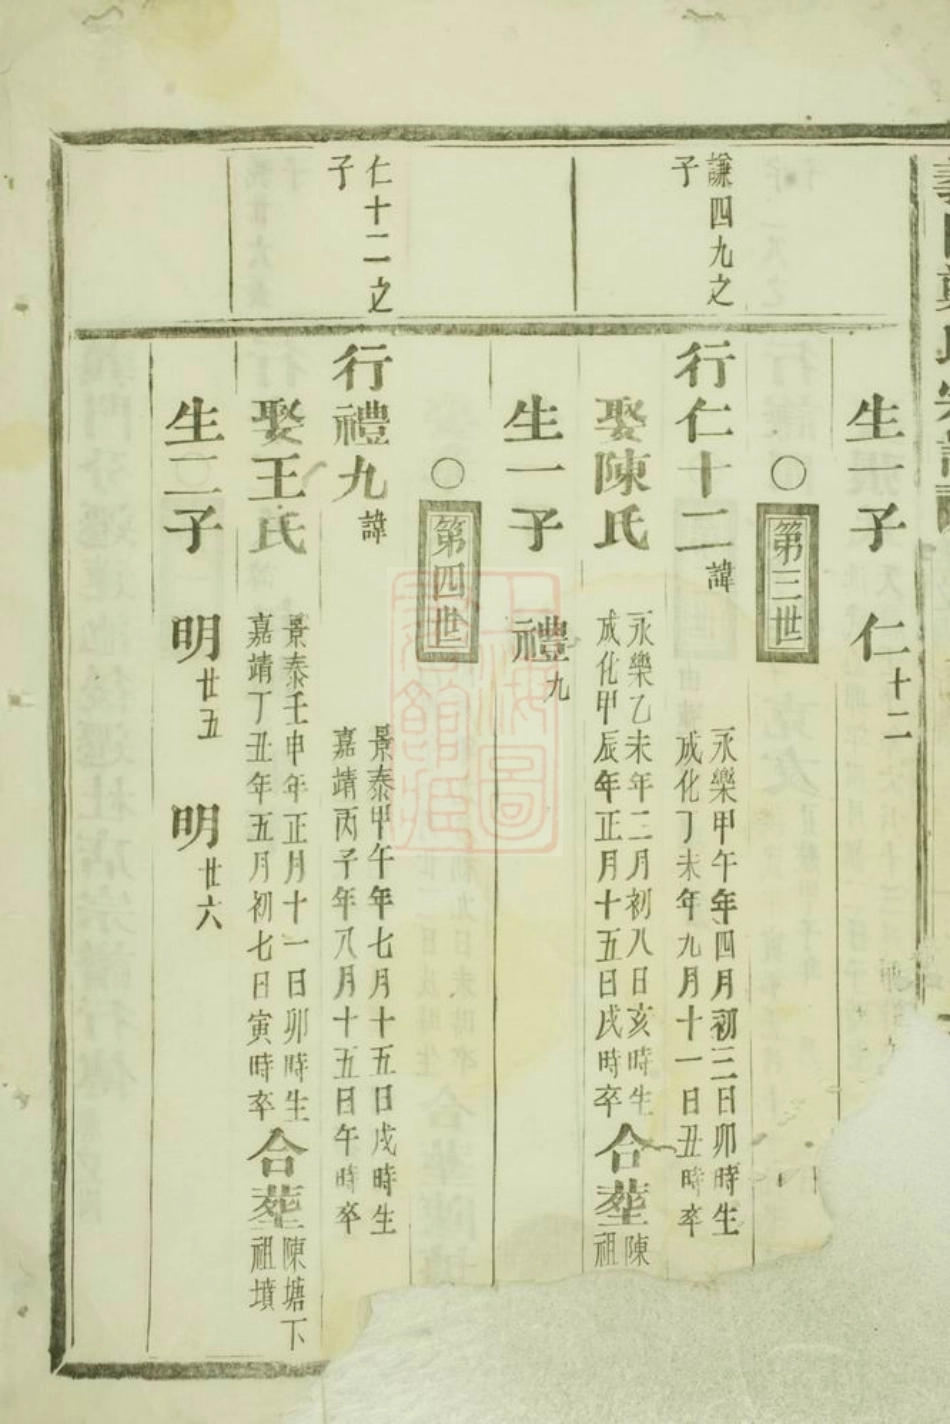 生一子 仁十二
○ 第三世
謙四九之子
行仁十二諱 永樂甲午年四月初三日卯時生
成化丁未年九月十一日丑時卒
娶陳氏 永樂乙未年二月初八日亥時生
成化甲辰年正月十五日戌時卒 合塟陳
祖
生一子 禮九
○ 第四世
仁十二之子
行禮九諱 景泰甲午年七月十五日戌時生
嘉靖丙子年八月十五日午時卒
娶王氏 景泰壬申年正月十一日卯時生
嘉靖丁丑年五月初七日寅時卒 合塟陳塘下
祖墳
生二子 明廿五 明廿六